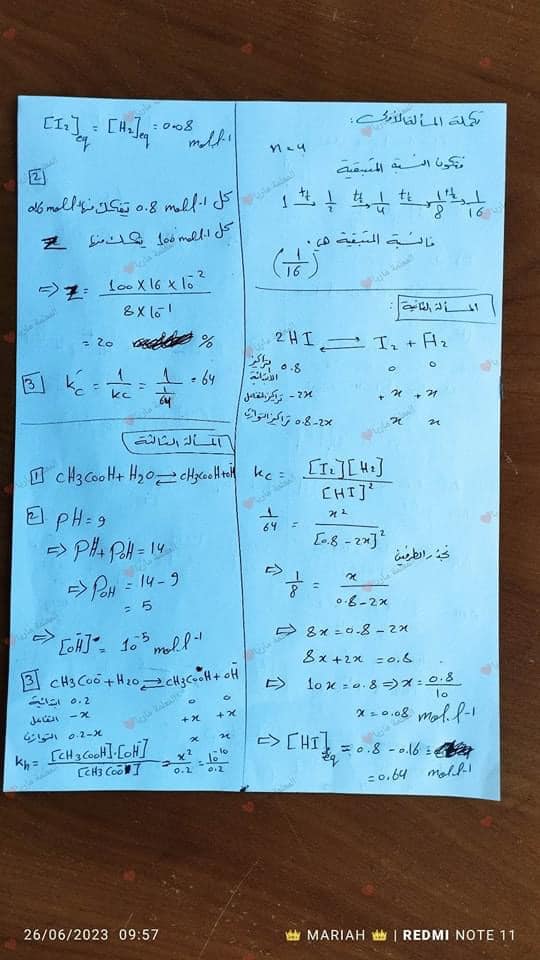 تكملة المسألة الأولى:
n = 4
تكون النسبة المتبقية
1 t½→ 1/2 t½→ 1/4 t½→ 1/8 t½→ 1/16
فالنسبة المتبقية هي:
(1/16)
المسألة الثانية:
2HI ⇌ I2 + H2
تراكيز الابتدائية 0.8 0 0
تراكيز التفاعل -2x +x +x
تراكيز التوازن 0.8-2x x x
Kc = [I2][H2] / [HI]²
1/64 = x² / [0.8-2x]²
نجذر الطرفين
⇒ 1/8 = x / 0.8-2x
⇒ 8x = 0.8 - 2x
8x + 2x = 0.8
⇒ 10x = 0.8 ⇒ x = 0.8/10
x = 0.08 mol.l-1
⇒ [HI]eq = 0.8 - 0.16 =
= 0.64 mol.l-1
[I2]eq = [H2]eq = 0.08 mol.l-1
2
كل 0.8 mol.l-1 تفكك منها 0.16 mol.l-1
كل 100 mol.l-1 يتفكك منها Z
⇒ Z = 100 × 16 × 10-² / 8 × 10-¹
= 20 %
3 K´c = 1/Kc = 1/(1/64) = 64
المسألة الثالثة
1 CH3COOH + H2O ⇌ CH3COOH + OH
2 PH = 9
⇒ PH + POH = 14
⇒ POH = 14 - 9
= 5
⇒ [OH-] = 10-5 mol.l-1
3 CH3COO- + H2O ⇌ CH3COOH + OH-
ابتدائية 0.2 0 0
التفاعل -x +x +x
التوازن 0.2-x x x
Kh = [CH3COOH].[OH-] / [CH3COO-] = x²/0.2 = 10-10/0.2
26/06/2023 09:57
MARIAH | REDMI NOTE 11